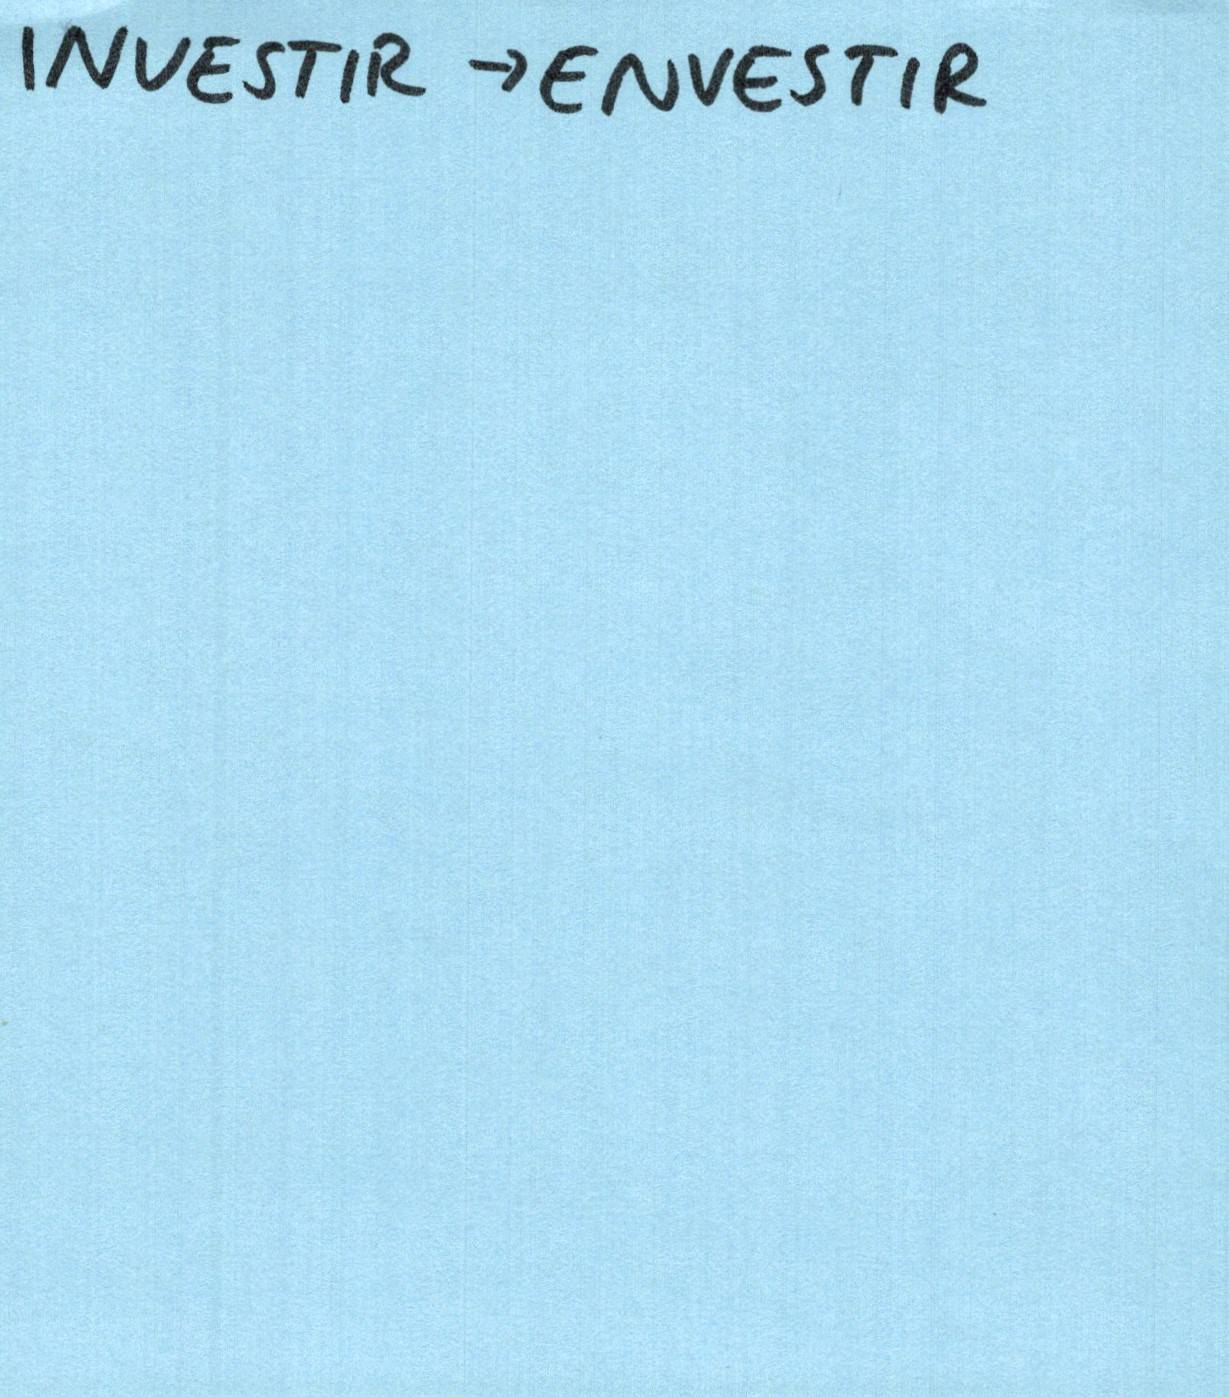 INVESTIR → ENVESTIR